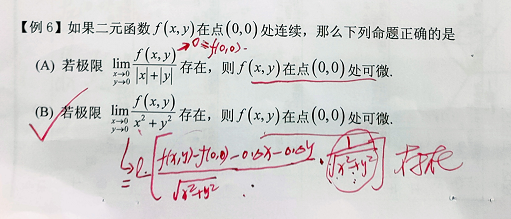 【例 6】如果二元函数 f(x,y) 在点(0,0) 处连续，那么下列命题正确的是
→ 0 = f(0,0).
(A) 若极限 lim x→0 y→0 f(x,y)/(|x|+|y|) 存在，则 f(x,y) 在点(0,0) 处可微.
(B) 若极限 lim x→0 y→0 f(x,y)/(x²+y²) 存在，则 f(x,y) 在点(0,0) 处可微.
= l. [ (f(x,y)-f(0,0)-0·Δx-0·Δy)/√(x²+y²) · 1/√(x²+y²) ] 存在